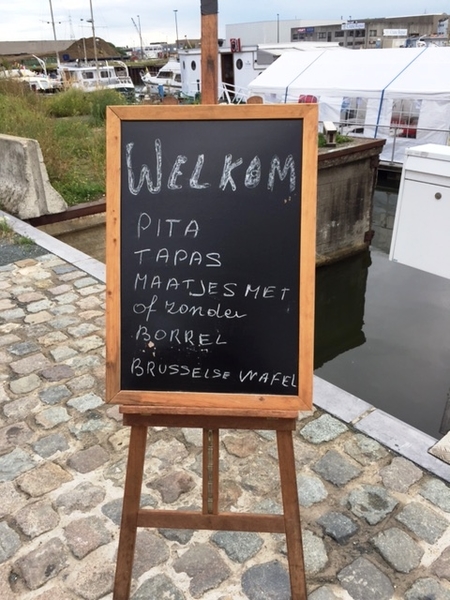 WELKOM
PITA
TAPAS
MAATJES MET
of zonder
BORREL
BRUSSELSE WAFEL